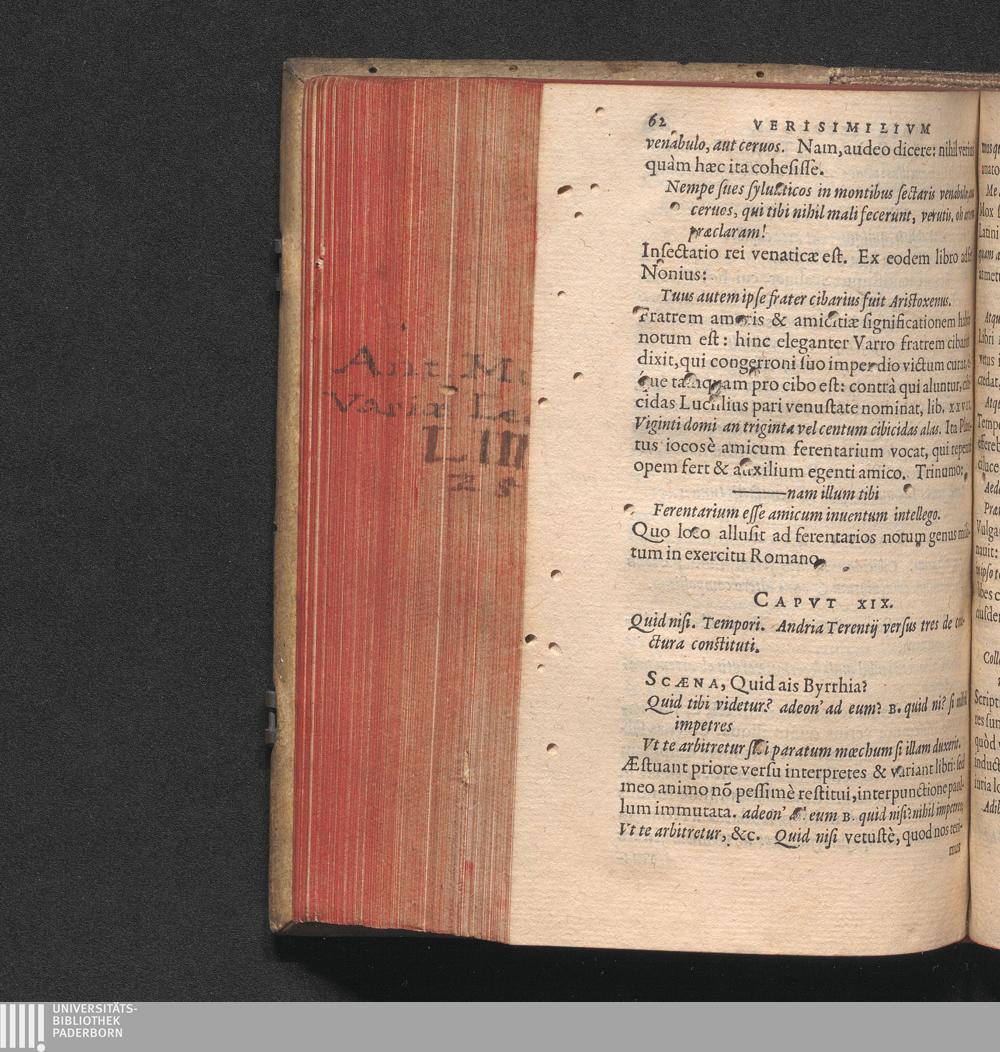 62 VERISIMILIVM
venabulo, aut ceruos. Nam, audeo dicere: nihil verius
quàm hæc ita cohesissè.
Nempe sues syluaticos in montibus sectaris venabulo, aut
ceruos, qui tibi nihil mali fecerunt, verutis, oh artem
præclaram!
Insectatio rei venaticæ est. Ex eodem libro adfert
Nonius:
Tuus autem ipse frater cibarius fuit Aristoxenus.
Fratrem amoris & amicitiæ significationem habere
notum est: hinc eleganter Varro fratrem cibarium
dixit, qui congerroni suo impendio victum curat,
que tamquam pro cibo est: contrà qui aluntur, cibi-
cidas Lucilius pari venustate nominat, lib. XXVII.
Viginti domi an triginta vel centum cibicidas alas. Ita Plau-
tus iocosè amicum ferentarium vocat, qui repentè
opem fert & auxilium egenti amico. Trinumo:
nam illum tibi
Ferentarium esse amicum inuentum intellego.
Quo loco allusit ad ferentarios notum genus mili-
tum in exercitu Romano.
CAPVT XIX.
Quid nisi. Tempori. Andria Terentij versus tres de co-
ctura constituti.
SCÆNA, Quid ais Byrrhia?
Quid tibi videtur? adeon' ad eum? B. quid ni? si nihil
impetres
Vt te arbitretur sibi paratum mœchum si illam duxerit.
Æstuant priore versu interpretes & variant libri: sed
meo animo nõ pessimè restitui, interpunctione paul-
lum immutata. adeon' ad eum B. quid nisi? nihil impetres,
Vt te arbitretur, &c. Quid nisi vetustè, quod nos reni-
mus
Ant. Mu
Variæ Lec
L III
25
UNIVERSITÄTS-
BIBLIOTHEK
PADERBORN